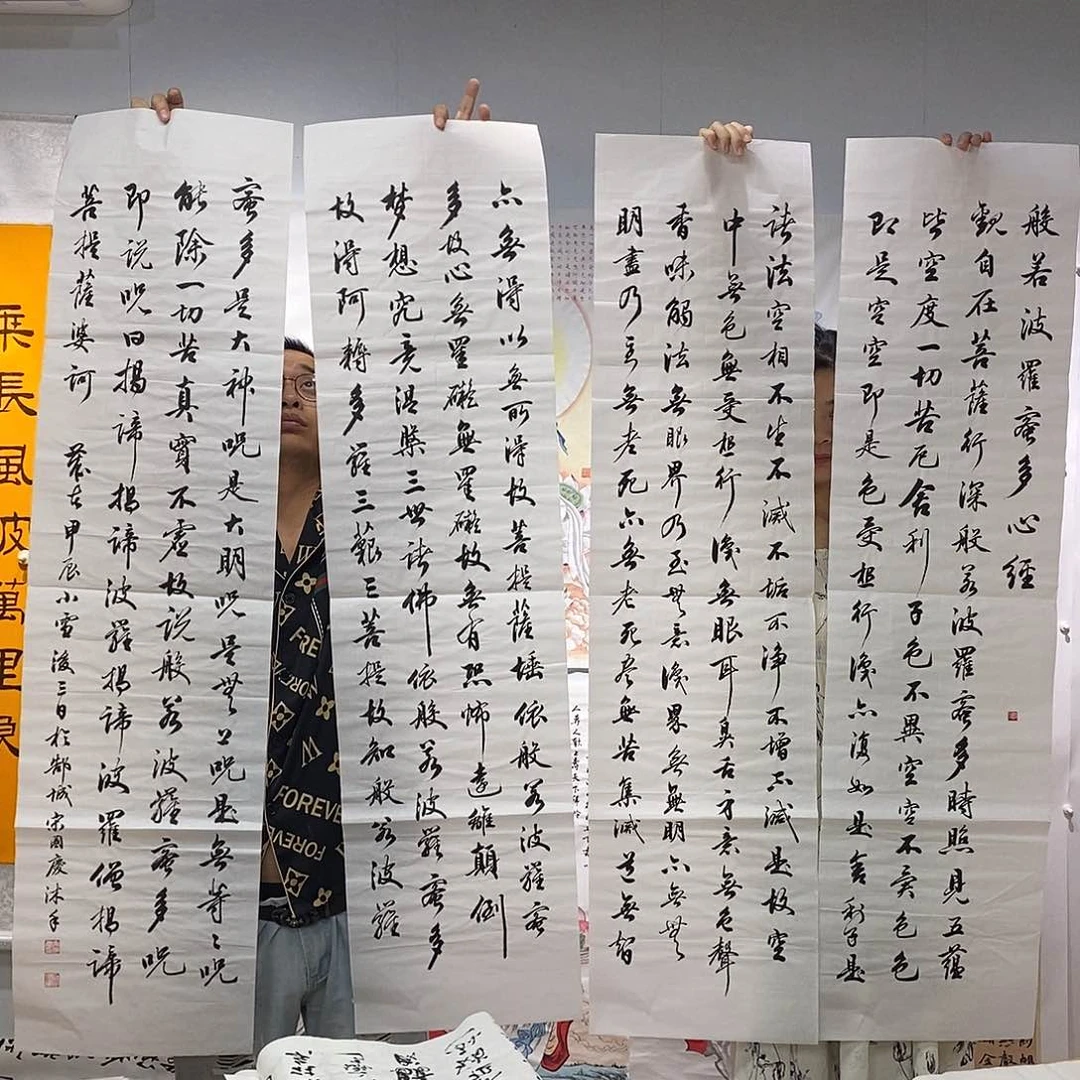 般若波羅蜜多心經
觀自在菩薩行深般若波羅蜜多時照見五蘊
皆空度一切苦厄舍利子色不異空空不異色色
即是空空即是色受想行識亦復如是舍利子是
諸法空相不生不滅不垢不淨不增不減是故空
中無色無受想行識無眼耳鼻舌身意無色聲
香味觸法無眼界乃至無意識界無無明亦無無
明盡乃至無老死亦無老死盡無苦集滅道無智
亦無得以無所得故菩提薩埵依般若波羅蜜
多故心無罣礙無罣礙故無有恐怖遠離顛倒
梦想究竟涅槃三世諸佛依般若波羅蜜多
故得阿耨多羅三藐三菩提故知般若波羅
蜜多是大神呪是大明呪是無上呪是無等〻呪
能除一切苦真實不虛故說般若波羅蜜多呪
即說呪曰揭諦揭諦波羅揭諦波羅僧揭諦
菩提薩婆訶 歲在甲辰小雪後三日於城宋国慶沐手
乘長風破萬里浪
FOREVER
FOREVER